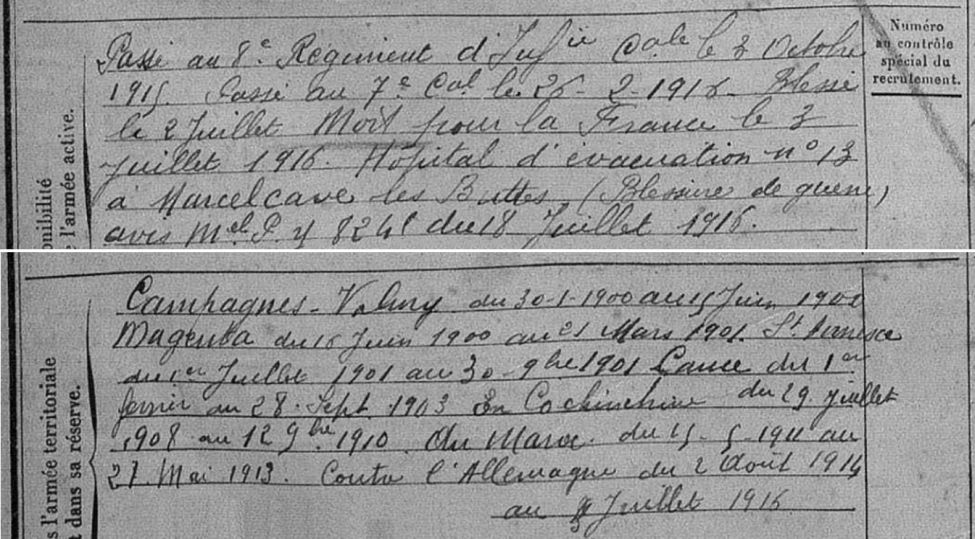 Numéro
au contrôle
spécial du
recrutement.
onibilité
e l'armée active.
Passé au 8e Régiment d'Infie Cole le 3 Octobre
1915. Passé au 7e Cal le 26-2-1916- Blessé
le 2 Juillet Mort pour la France le 3
Juillet 1916. Hôpital d'évacuation n° 13
à Marcelcave les Buttes, (Blessure de guerre,)
avis Mel P. y 8241 du 18 Juillet 1916.
s l'armée territoriale
t dans sa réserve.
Campagnes - Valmy du 30-1-1900 au 15 Juin 1900
Magenta du 16 Juin 1900 au 21 Mars 1901. St
du 1er Juillet 1901 au 30-9bre 1901 Lance du 1er
février au 28 Sept 1903 En Cochinchine du 29 Juillet
1908 au 12 9bre 1910. Au Maroc du 15-5-1911 au
27 Mai 1913. Contre l'Allemagne du 2 Août 1914
au 3 Juillet 1916